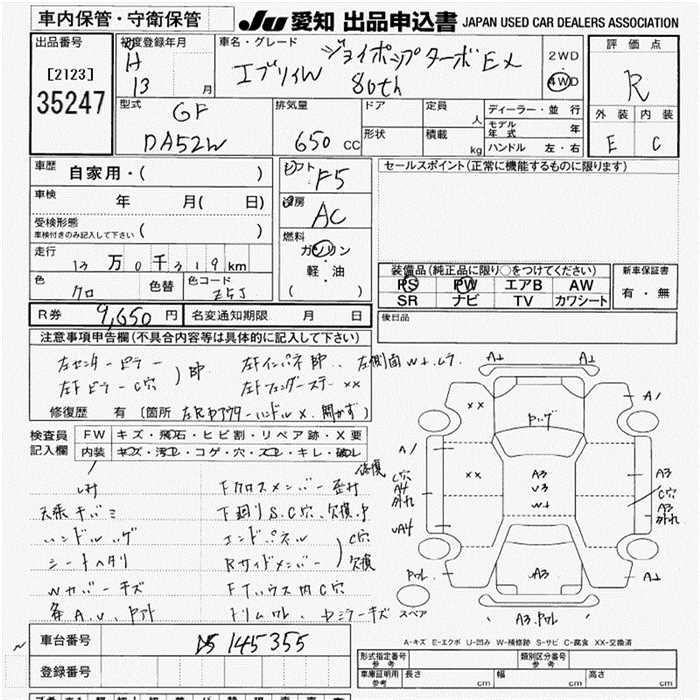 車内保管・守衛保管
JU 愛知 出品申込書 JAPAN USED CAR DEALERS ASSOCIATION
出品番号
[2123]
35247
初度登録年月
H
13 月
車名・グレード
ジョイポップターボEX
エブリイW 80th
2WD
4WD
評価点
R
外装 内装
E C
型式
GF
DA52W
排気量
650 CC
ドア
形状
定員
人
積載
kg
ディーラー・並行
モデル年式 年
ハンドル 左・右
車歴 自家用・( )
車検 年 月( 日)
受検形態
車検付きのみ記入して下さい ( )
走行
13万0千319km
色
クロ
色替
色コード
Z5J
シフト
F5
冷房
AC
燃料
ガソリン
・
軽・油
( )
セールスポイント(正常に機能するものに限ります)
装備品(純正品に限り○をつけてください)
PS PW エアB AW
SR ナビ TV カワシート
新車保証書
有・無
後日品
R券 9,650円 名変通知期限 月 日
注意事項申告欄(不具合内容等は具体的に記入して下さい)
左センターピラー
左Fピラー C穴
左Fインパネ
左Fフェンダーステー XX
修復歴 有 [箇所
検査員
記入欄
FW キズ・飛石・ヒビ割・リペア跡・X要
内装 キズ・汚レ・コゲ・穴・スレ・キレ・破レ
天張キバミ
ハンドルハゲ
シートヘタリ
Wカバーキズ
Fクロスメンバー歪
下廻りS.C穴、欠損
エンドパネル
Rサイドメンバー
C穴
欠損
Fタイハウス内C穴
スペア
A1
A1
A1
A3
U3
W1
A3
C穴
A3
C穴
A4
UA4
A3
A1
XX
XX
A-キズ E-エクボ U-凹み W-補修跡 S-サビ C-腐食 XX-交換済
車台番号 145355
登録番号
形式指定番号
参考
類別区分番号
参考
車庫証明用
参考
長さ cm
幅 cm
高さ cm